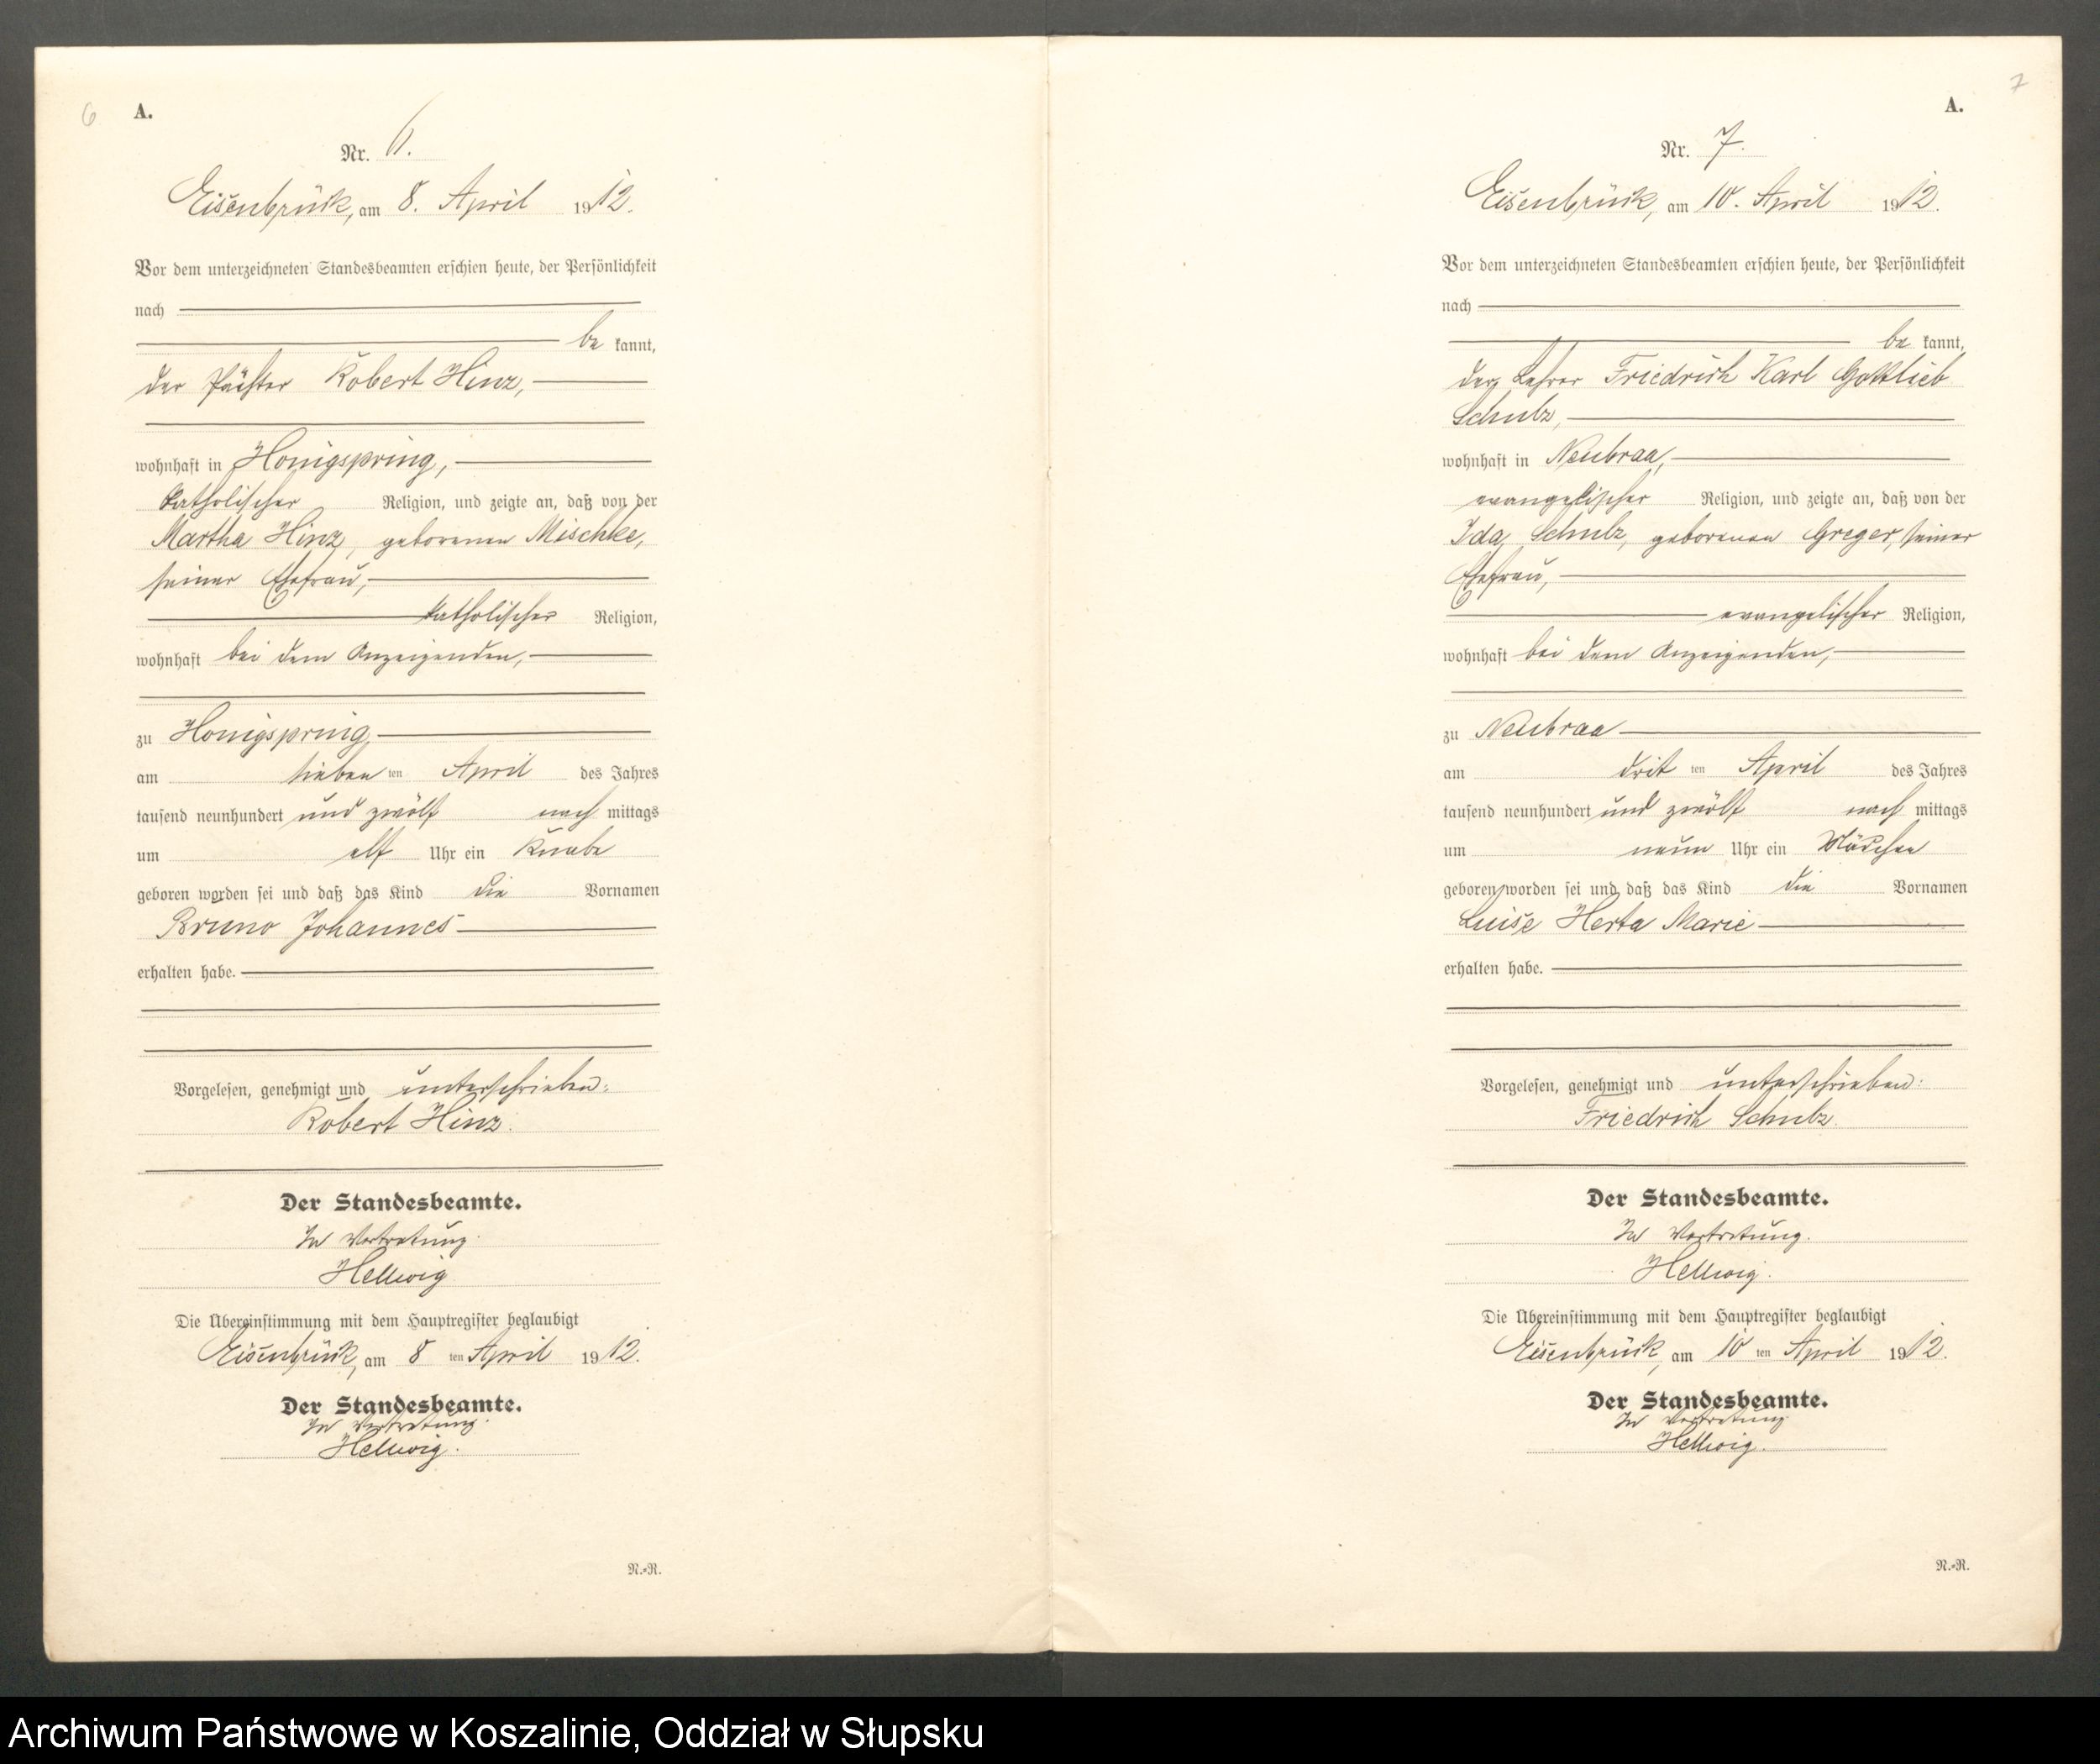 6
A.
Nr. 6.
Eisenbrück, am 8. April 1912.
Vor dem unterzeichneten Standesbeamten erschien heute, der Persönlichkeit
nach
be kannt,
der Pächter Robert Hinz,
wohnhaft in Honigspring,
katholischer Religion, und zeigte an, daß von der
Martha Hinz, geborenen Mischke,
seiner Ehefrau,
katholischer Religion,
wohnhaft bei dem Anzeigenden,
zu Honigspring,
am sieben ten April des Jahres
tausend neunhundert und zwölf nach mittags
um elf Uhr ein Knabe
geboren worden sei und daß das Kind die Vornamen
Bruno Johannes
erhalten habe.
Vorgelesen, genehmigt und unterschrieben:
Robert Hinz.
Der Standesbeamte.
In Vertretung.
Hellwig
Die Übereinstimmung mit dem Hauptregister beglaubigt
Eisenbrück, am 8 ten April 1912.
Der Standesbeamte.
In Vertretung.
Hellwig.
N.-R.
7
A.
Nr. 7.
Eisenbrück, am 10. April 1912.
Vor dem unterzeichneten Standesbeamten erschien heute, der Persönlichkeit
nach
be kannt,
der Lehrer Friedrich Karl Gottlieb
Schulz,
wohnhaft in Neubraa,
evangelischer Religion, und zeigte an, daß von der
Ida Schulz, geborenen Greger, seiner
Ehefrau,
evangelischer Religion,
wohnhaft bei dem Anzeigenden,
zu Neubraa
am drit ten April des Jahres
tausend neunhundert und zwölf nach mittags
um neun Uhr ein Mädchen
geboren worden sei und daß das Kind die Vornamen
Luise Herta Marie
erhalten habe.
Vorgelesen, genehmigt und unterschrieben:
Friedrich Schulz.
Der Standesbeamte.
In Vertretung.
Hellwig.
Die Übereinstimmung mit dem Hauptregister beglaubigt
Eisenbrück, am 10 ten April 1912.
Der Standesbeamte.
In Vertretung
Hellwig.
N.-R.
Archiwum Państwowe w Koszalinie, Oddział w Słupsku